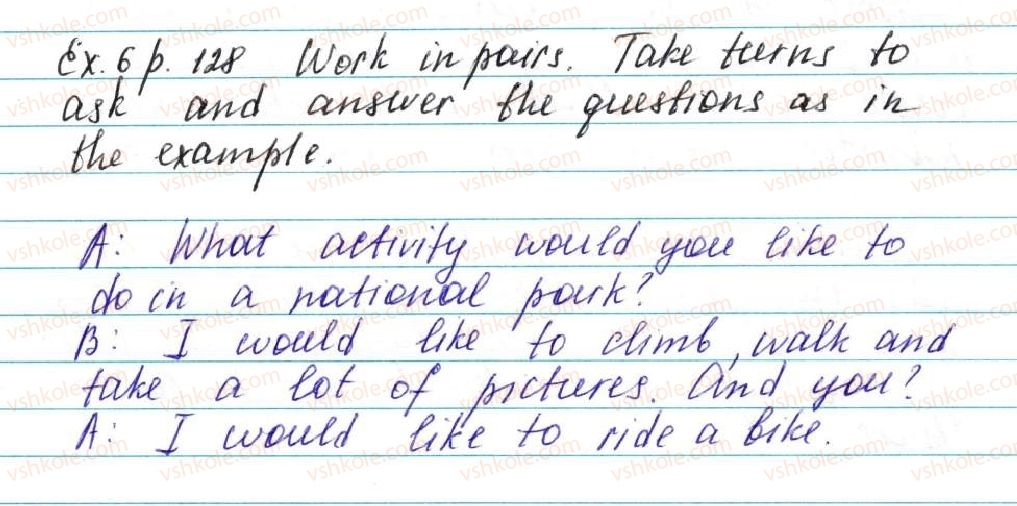 Ex. 6 p. 128 Work in pairs. Take turns to
ask and answer the questions as in
the example.
A: What activity would you like to
do in a national park?
B: I would like to climb, walk and
take a lot of pictures. And you?
A: I would like to ride a bike.